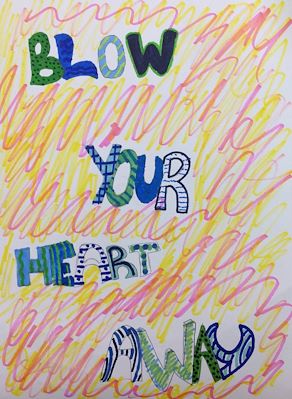 BLOW
YOUR
HEART
AWAY